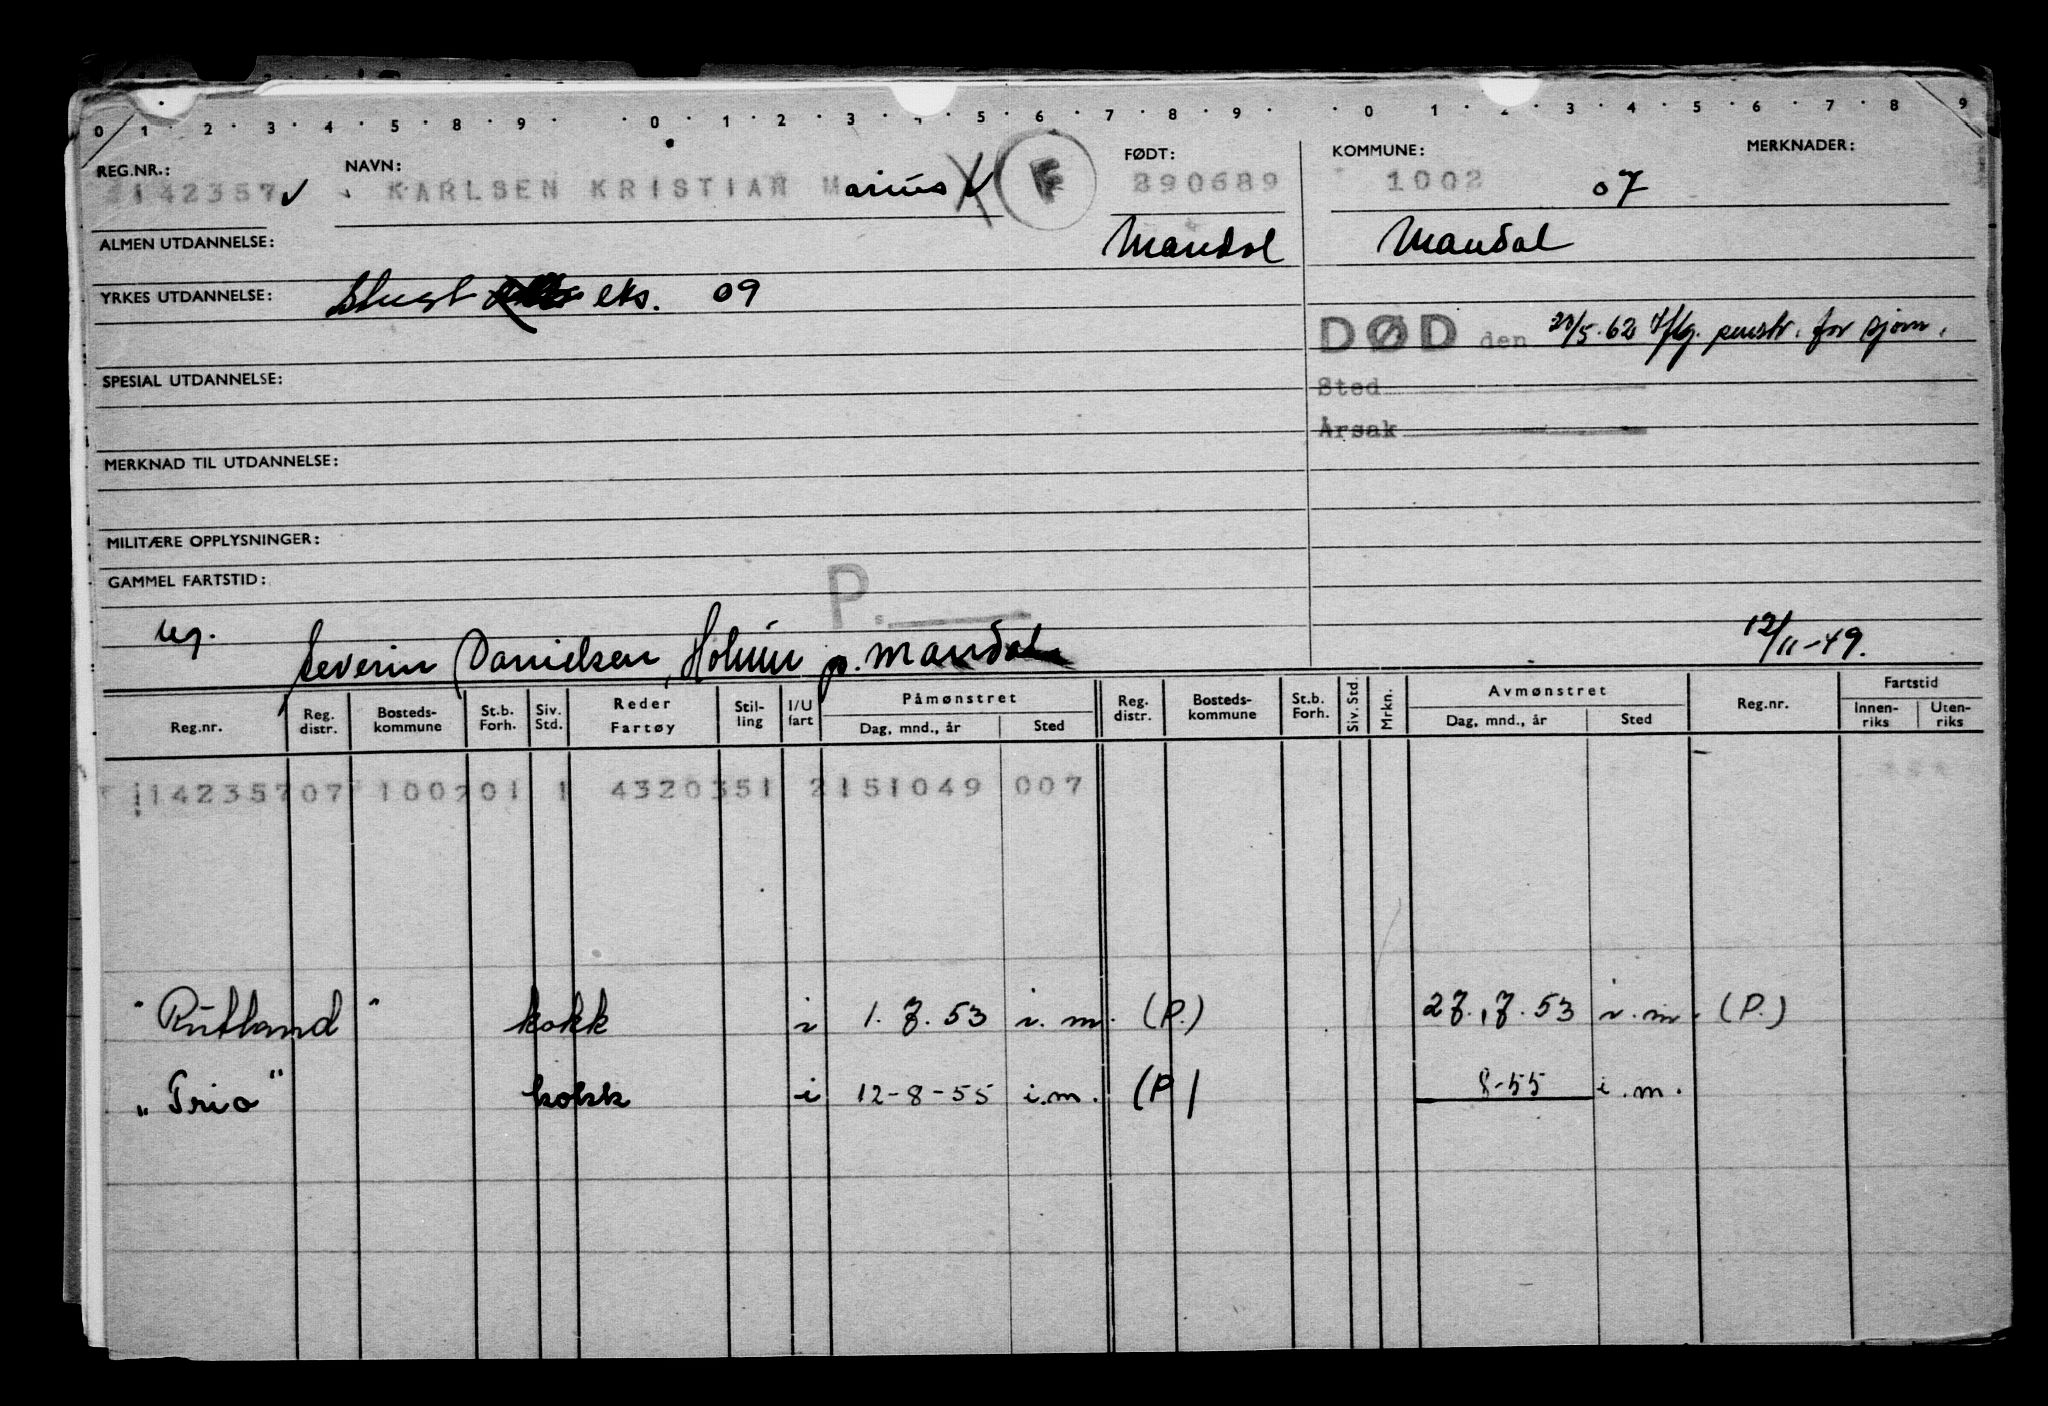 0 1 2 3 4 5 8 9 0 1 2 3 4 5 6 7 8 9 0 1 2 3 4 5 6 7 8 9
REG.NR.: NAVN: FØDT: KOMMUNE: MERKNADER:
142357 ✓ KARLSEN KRISTIAN Marius ✓ F 290689 1002 07
ALMEN UTDANNELSE: Mandal Mandal
YRKES UTDANNELSE: eks. 09
DØD den 20/5.62 iflg. penstr. for sjøm.
SPESIAL UTDANNELSE: Sted
Årsak
MERKNAD TIL UTDANNELSE:
MILITÆRE OPPLYSNINGER:
GAMMEL FARTSTID: P.
ug. Severin Danielsen, Holum p. Mandal 12/11-49.
Reg.nr. Reg. distr. Bosteds-kommune St.b. Forh. Siv. Std. Reder Fartøy Stil-ling I/U fart Påmønstret Dag, mnd., år Sted Reg. distr. Bosteds-kommune St.b. Forh. Siv. Std. Mrkn. Avmønstret Dag, mnd., år Sted Reg.nr. Fartstid Innen-riks Uten-riks
14235707 100201 1 4320351 2151049 007
"Rutland" kokk i 1.7.53 i.m. (P.) 27.7.53 i.m. (P.)
"Trio" kokk i 12-8-55 i.m. (P) 8-55 i.m.